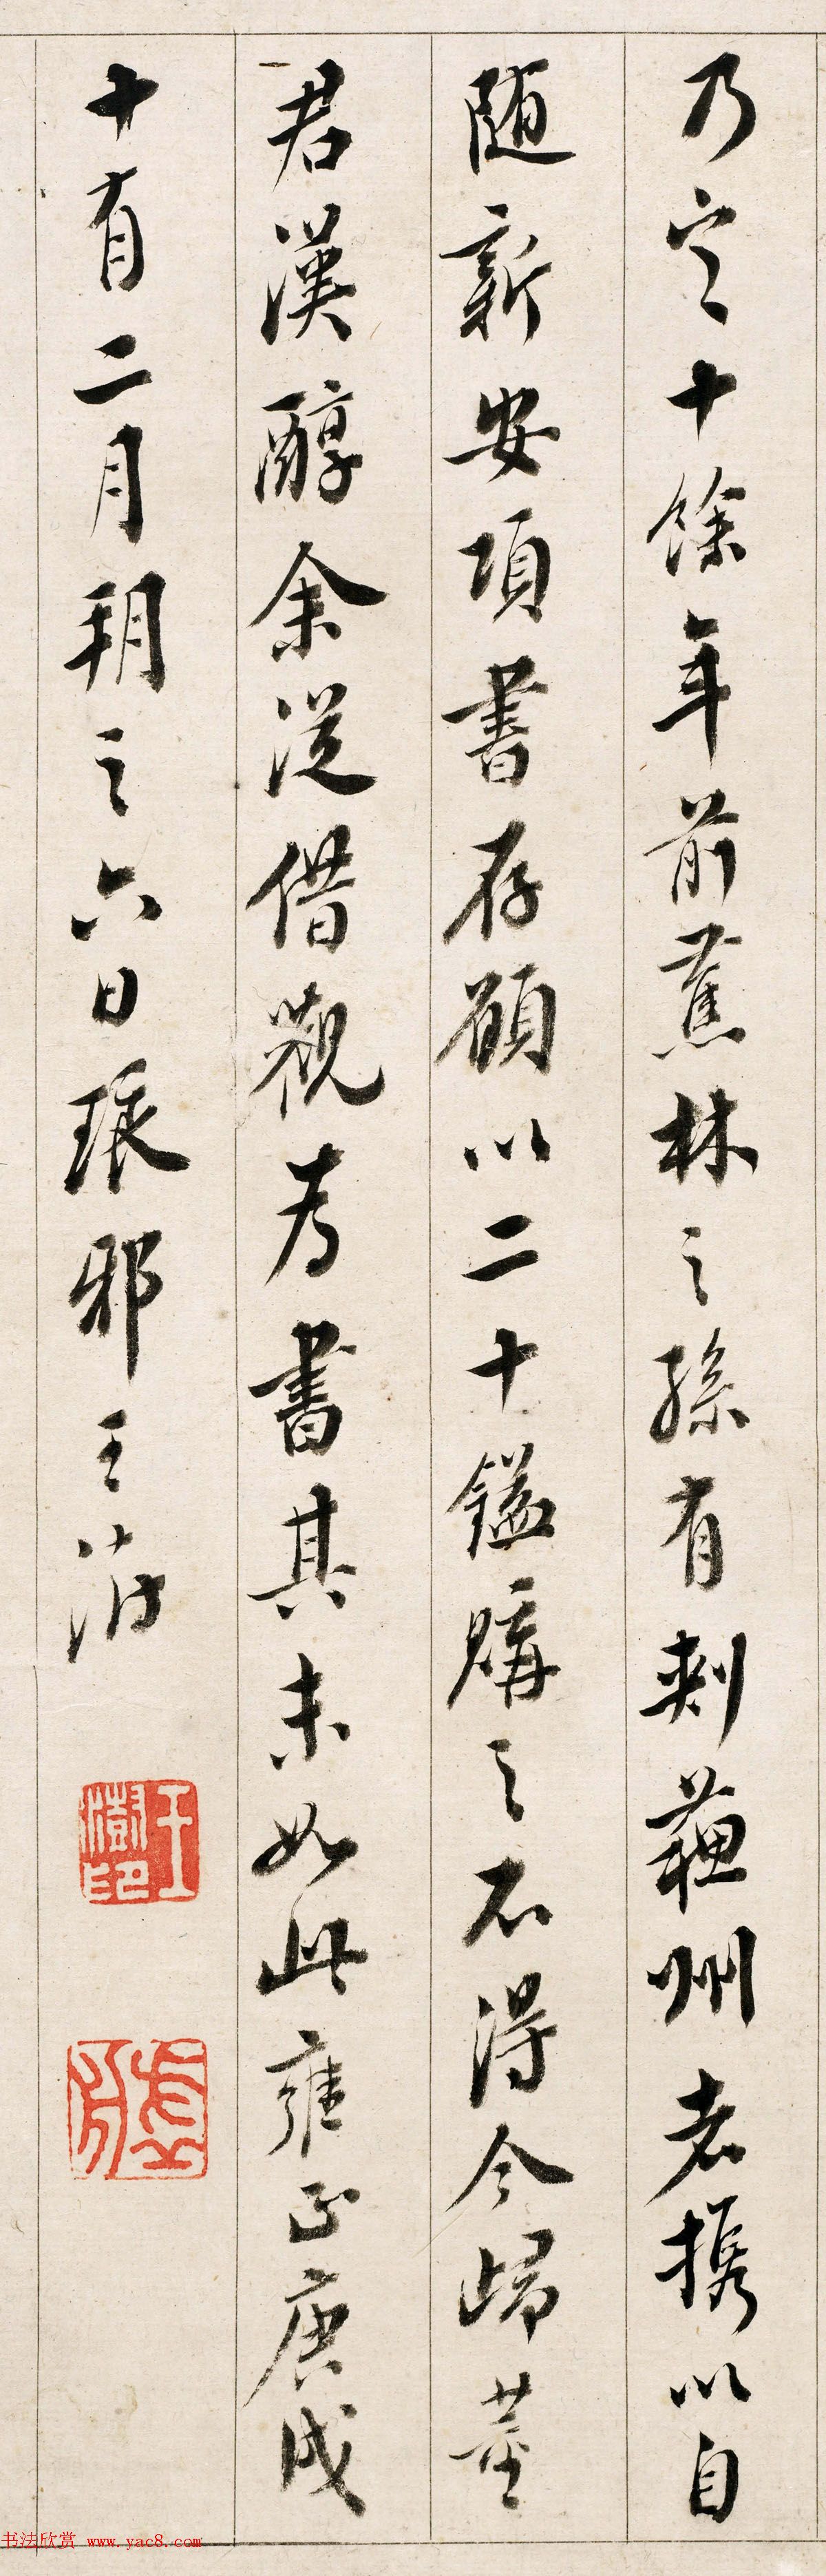 乃定十餘年前蕉林之孫有刺蘇州者攜以自
随新安項書存願以二十鎰購之不得今歸董
君漢醇余從借觀為書其末如此雍正庚戌
十有二月朔之六日琅邪王澍
王澍印
虛舟
书法欣赏 www.yac8.com